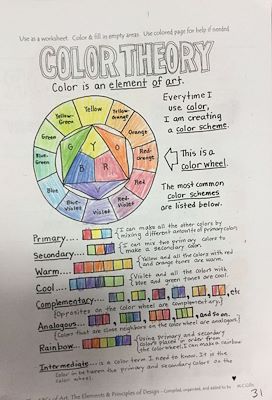 1
Use as a worksheet. Color & fill in empty areas. Use colored page for help if needed.
COLOR THEORY
Color is an element of art.
Everytime I
use color,
I am creating
a color scheme.
Yellow
Yellow-Orange
Orange
Red-orange
Red
Red-Violet
Violet
Blue-Violet
Blue
Blue-Green
Green
Yellow-Green
Y
O
R
B
G
This is a
color wheel.
The most common
color schemes
are listed below.
Primary....
I can make all the other colors by
mixing different amounts of primary colors
Secondary....
I can mix two primary colors to
make a secondary color.
Warm....
Yellow and all the colors with red
and orange tones are warm.
Cool....
Violet and all the colors with
blue and green tones are cool.
Complementary.... etc
(Opposites on the color wheel are complementary.)
Analogous.... and so on.
(Colors that are close neighbors on the color wheel are analogous.)
Rainbow...
Using primary and secondary
colors placed in order from
the color wheel, I can make a rainbow
Intermediate... is a color term I need to know. It is the
Color in between the primary and secondary Colors on the
Color wheel.
of Art, The Elements & Principles of Design – Compiled, organized, and added to by M.C.Gillis
31